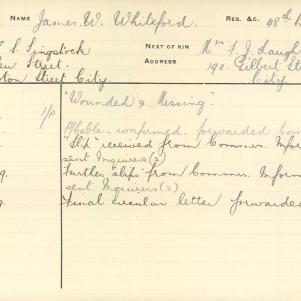 NAME James. W. Whiteford. REG. &C. 48th B
S Singstock NEXT OF KIN Mrs F. J. Laugh
Street. ADDRESS 192 Gilbert St
ton Street City. City.
1/P "Wounded & Missing."
confirmed. forwarded Com
"Slip" received from Commr. Infor
sent Inquirers (2)
9. Further "slips" from Commr. Inform
sent Inquirers (2)
9. Final circular letter forwarded